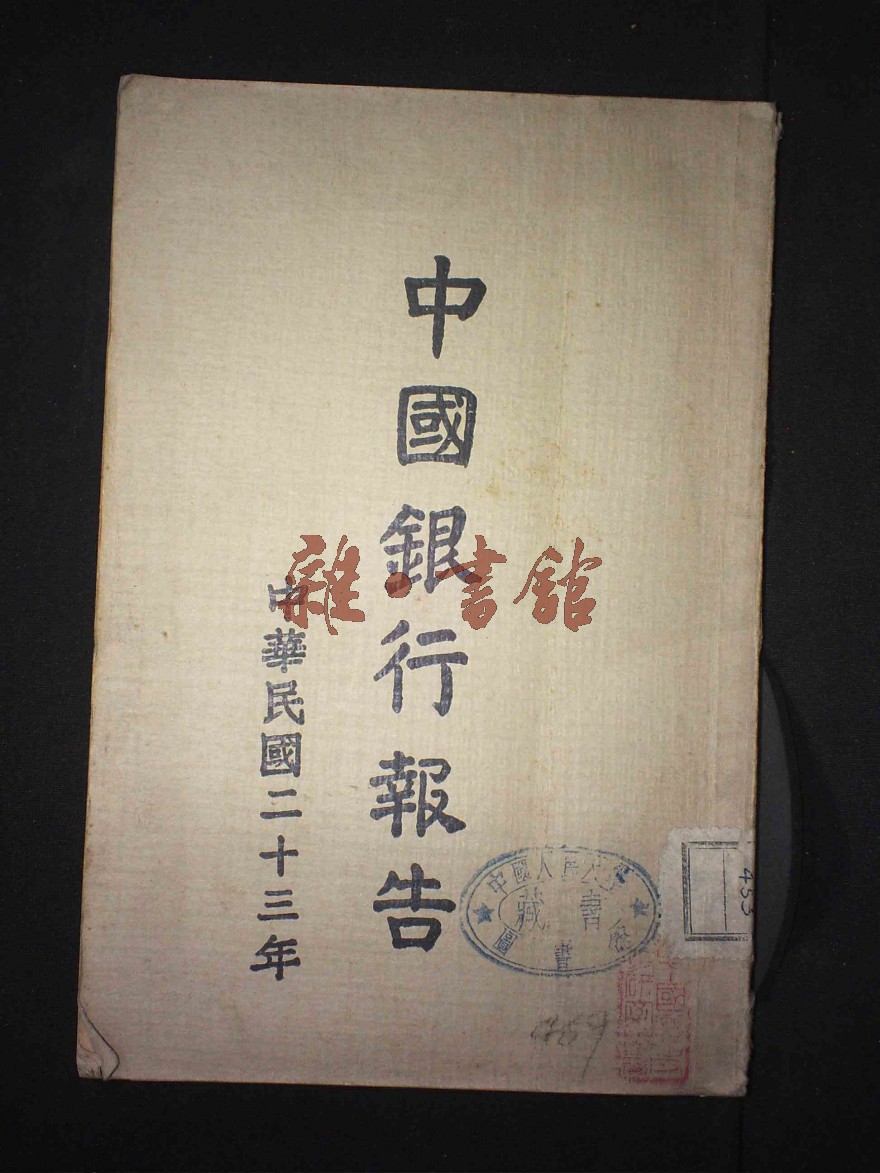 中國銀行報告
中華民國二十三年
雜·書館
中國人民大學
藏書
圖書館
453